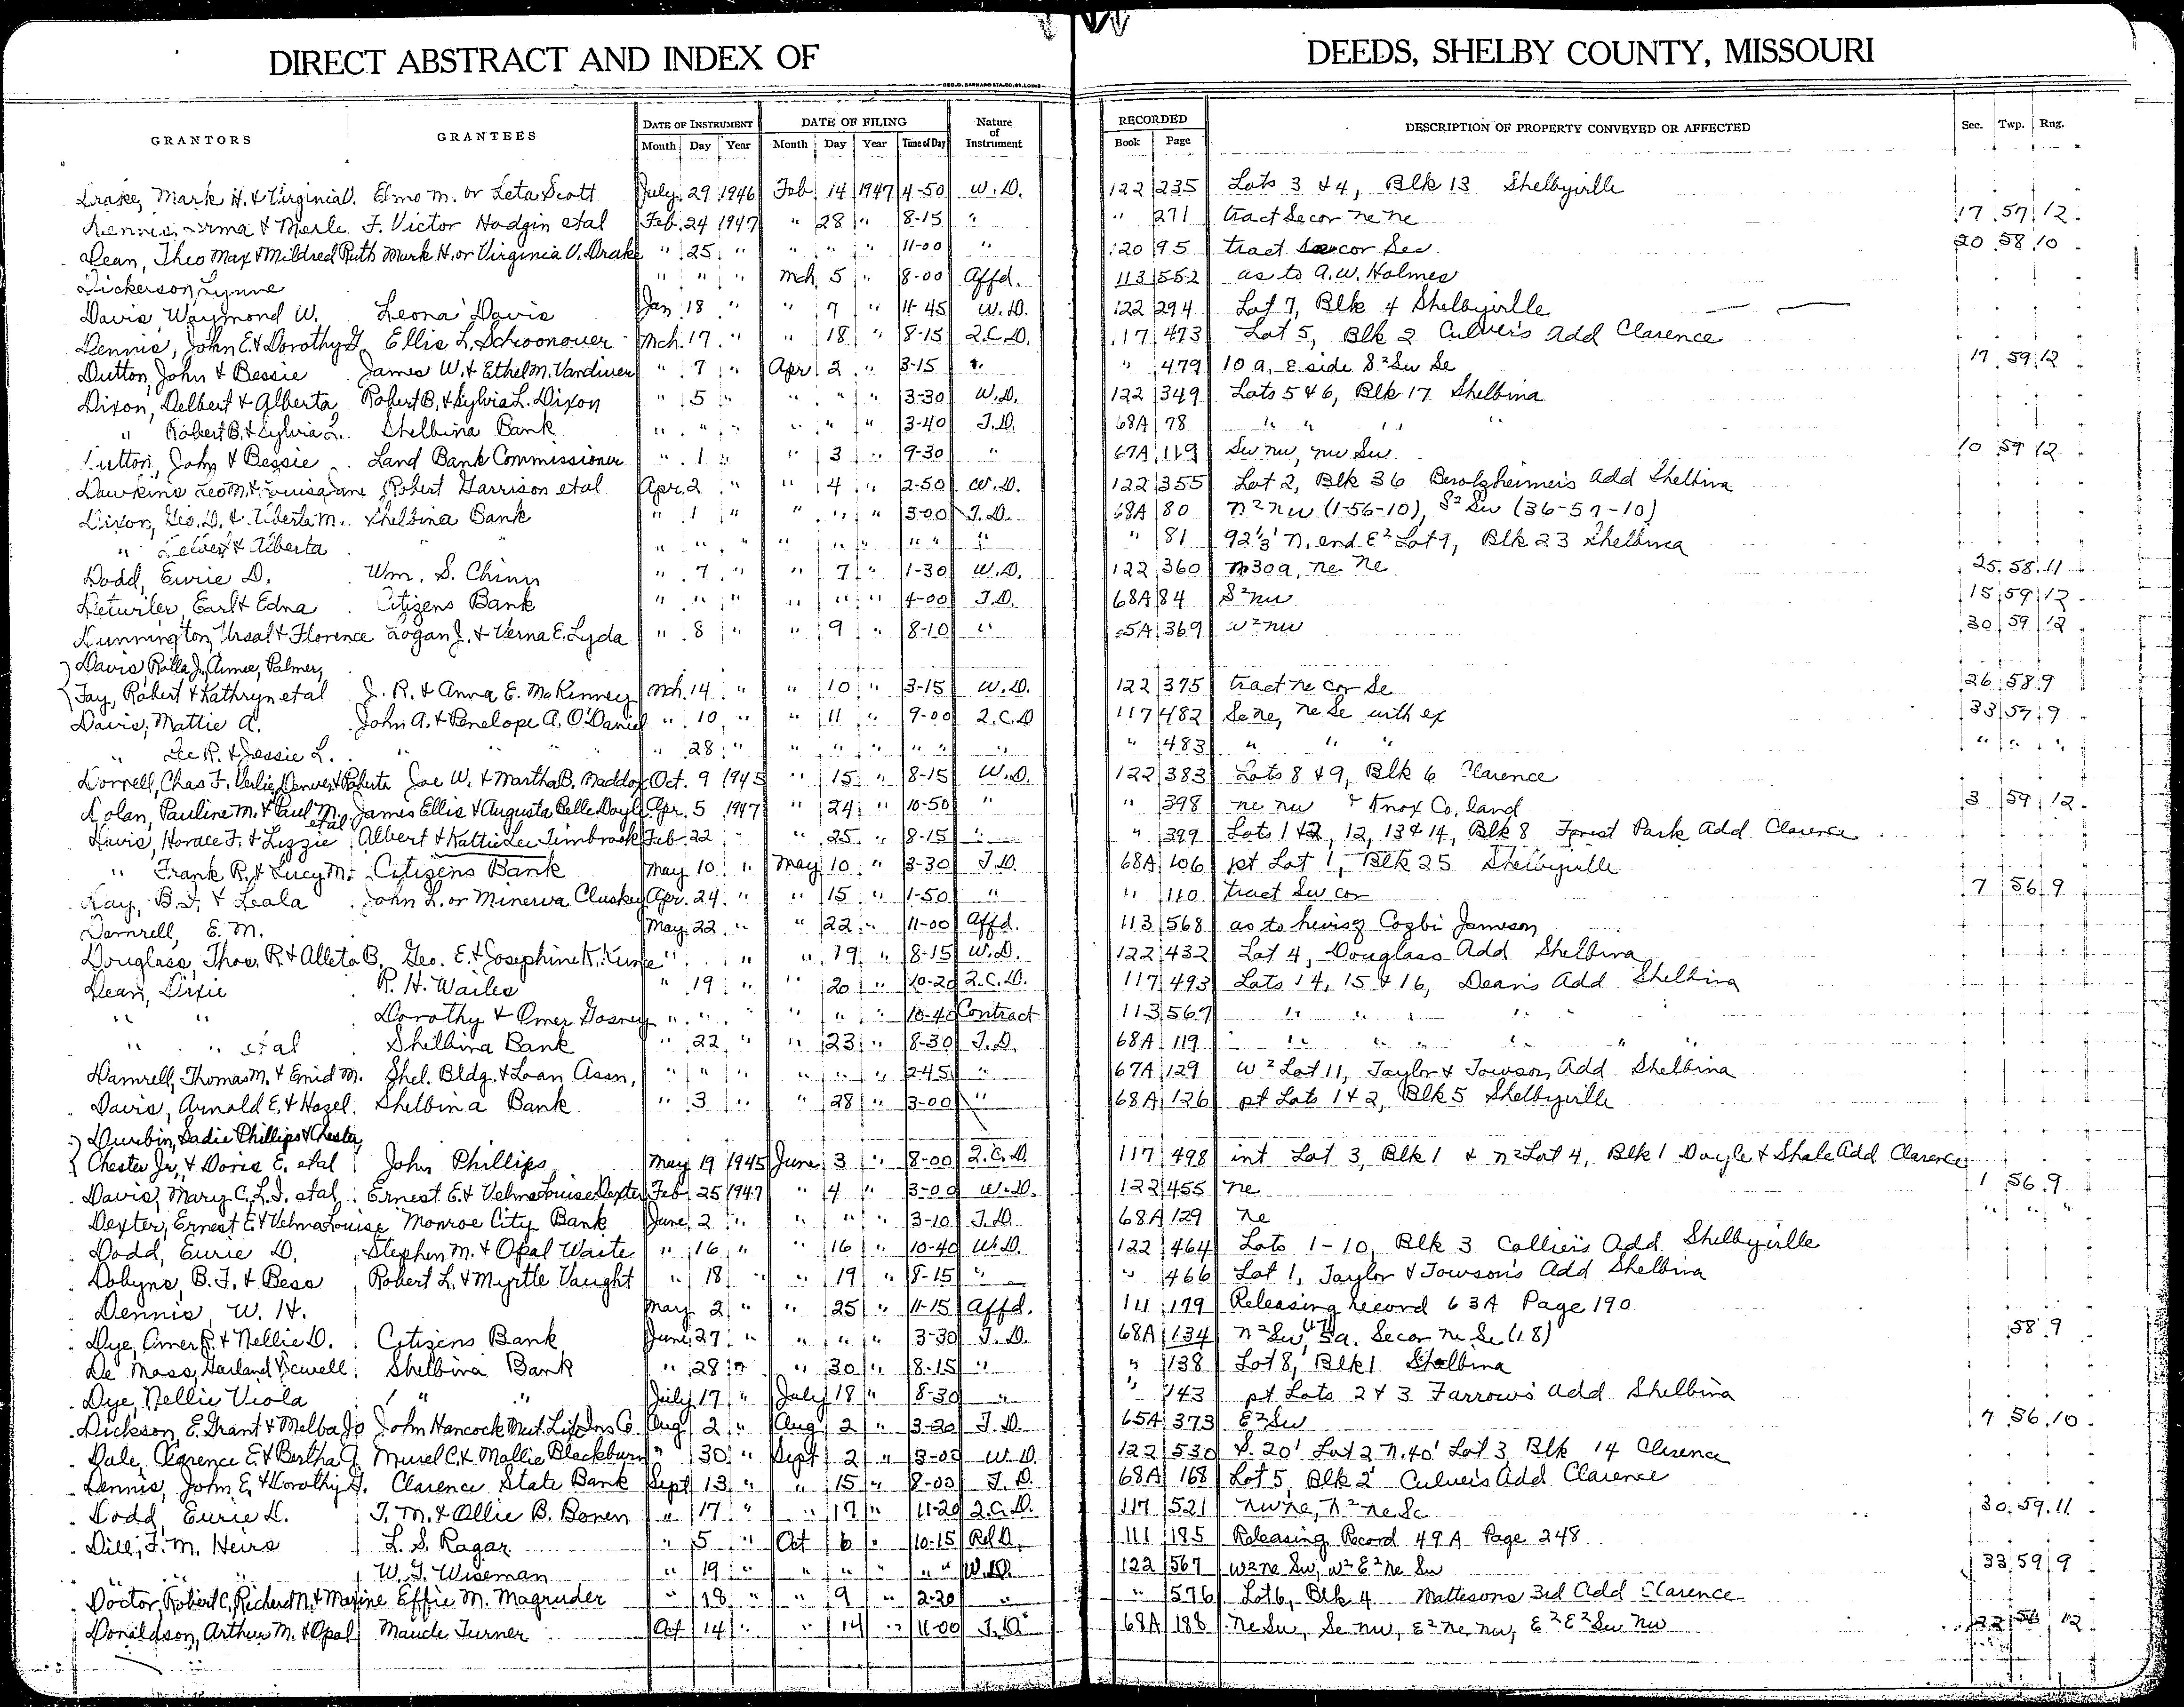 DIRECT ABSTRACT AND INDEX OF DEEDS, SHELBY COUNTY, MISSOURI
GEO. D. BARNARD STA. CO. ST. LOUIS
GRANTORS GRANTEES DATE OF INSTRUMENT DATE OF FILING Nature of Instrument RECORDED DESCRIPTION OF PROPERTY CONVEYED OR AFFECTED Sec. Twp. Rng.
Month Day Year Month Day Year Time of Day Book Page
Drake, Mark H. & Virginia V. Elmo M. or Leta Scott July 29 1946 Feb 14 1947 4-50 W.D. 122 235 Lots 3 & 4, Blk 13 Shelbyville
Dennis, Irma & Merle F. Victor Hodgin etal Feb. 24 1947 " 28 " 8-15 " " 271 tract Se cor ne ne 17 57 12
Dean, Theo Max & Mildred Ruth Mark H. or Virginia V. Drake " 25 " " " " 11-00 " 120 95 tract cor Sec 20 58 10
Dickerson, Lynne " " " Mch 5 " 8-00 Affd. 113 552 as to A.W. Holmes
Davis, Waymond W. Leona Davis Jan 18 " " 7 " 11-45 W.D. 122 294 Lot 7, Blk 4 Shelbyville
Dennis, John E. & Dorothy G. Ellis L. Schoonover Mch. 17 " " 18 " 8-15 2.C.D. 117 473 Lot 5, Blk 2 Culver's Add Clarence
Dutton, John & Bessie James W. & Ethel M. Vandiver " 7 " Apr 2 " 3-15 " " 479 10 a, E. side S² Sw Se 17 59 12
Dixon, Delbert & Alberta Robert B. & Sylvia L. Dixon " 5 " " " " 3-30 W.D. 122 349 Lots 5 & 6, Blk 17 Shelbina
" Robert B. & Sylvia L. Shelbina Bank " " " " " " 3-40 T.D. 68A 78 " " " "
Dutton, John & Bessie Land Bank Commissioner " 1 " " 3 " 9-30 " 67A 119 Sw nw, nw Sw 10 59 12
Dawkins Leo M. & Louisa Jane Robert Garrison etal Apr. 2 " " 4 " 2-50 W.D. 122 355 Lot 2, Blk 36 Berolzheimer's Add Shelbina
Dixon, Geo. D. & Alberta M. Shelbina Bank " 1 " " " " 3-00 T.D. 68A 80 N² nw (1-56-10), S² Sw (36-57-10)
" Delbert & Alberta " " " " " " " " " " " " 81 92⅓' N. end E² Lot 9, Blk 23 Shelbina
Dodd, Eurie D. Wm. S. Chinn " 7 " " 7 " 1-30 W.D. 122 360 N 30 a, ne ne 25 58 11
Detwiler, Earl & Edna Citizens Bank " " " " " " 4-00 T.D. 68A 84 S² nw 15 59 12
Dunnington, Ursal & Florence Logan J. & Verna E. Lyda " 8 " " 9 " 8-10 " 65A 369 W² nw 30 59 12
Davis, Rolla J., Aimee, Palmer,
Fay, Robert & Kathryn etal J. R. & Anna E. McKinney Mch. 14 " " 10 " 3-15 W.D. 122 375 tract ne cor Se 26 58 9
Davis, Mattie A. John A. & Penelope A. O'Daniel " 10 " " 11 " 9-00 2.C.D 117 482 Se ne, ne Se with ex 33 57 9
" Lee R. & Jessie L. " " " " 28 " " " " " " " " 483 " " " " " "
Dorrell, Chas F. Verlie, Denver & Roberta Joe W. & Martha B. Maddox Oct. 9 1945 " 15 " 8-15 W.D. 122 383 Lots 8 & 9, Blk 6 Clarence
Dolan, Pauline M. & Paul M. etal James Ellis & Augusta Belle Doyle Apr. 5 1947 " 24 " 10-50 " " 398 ne nw & Knox Co. land 3 59 12
Davis, Horace F. & Lizzie Albert & Kattie Lee Timbrook Feb 22 " " 25 " 8-15 " " 399 Lots 1 & 2, 12, 13 & 14, Blk 8 Forest Park Add Clarence
" Frank R. & Lucy M. Citizens Bank May 10 " May 10 " 3-30 T.D. 68A 106 pt Lot 1, Blk 25 Shelbyville
Day, B.F. & Leala John L. or Minerva Cluskey Apr. 24 " " 15 " 1-50 " " 110 tract Sw cor 7 56 9
Damrell, E. M. May 22 " " 22 " 11-00 Affd. 113 568 as to heirs of Cozbi Jameson
Douglass, Thos. R. & Alleta B. Geo. E. & Josephine K. Kunze " " " " 19 " 8-15 W.D. 122 432 Lot 4, Douglass Add Shelbina
Dean, Dixie R. H. Wailes " 19 " " 20 " 10-20 2.C.D. 117 493 Lots 14, 15 & 16, Dean's Add Shelbina
" " Dorothy & Omer Gosney " " " " " " 10-40 Contract 113 567 " " " " "
" " etal Shelbina Bank " 22 " " 23 " 8-30 T.D. 68A 119 " " " " " "
Damrell, Thomas M. & Enid M. Shel. Bldg. & Loan Assn, " " " " " " 2-45 " 67A 129 W² Lot 11, Taylor & Towson Add Shelbina
Davis, Arnold E. & Hazel. Shelbina Bank " 3 " " 28 " 3-00 " 68A 126 pt Lots 1 & 2, Blk 5 Shelbyville
Durbin, Sadie Phillips & Chester,
Chester Jr, & Doris E. etal John Phillips May 19 1945 June 3 " 8-00 2.C.D. 117 498 int Lot 3, Blk 1 & N² Lot 4, Blk 1 Doyle & Shale Add Clarence
Davis, Mary C., L.J. etal Ernest E. & Velma Louise Dexter Feb 25 1947 " 4 " 3-00 W.D. 122 455 ne 1 56 9
Dexter, Ernest E & Velma Louise Monroe City Bank June 2 " " " " 3-10 T.D. 68A 129 ne " " "
Dodd, Eurie D. Stephen M. & Opal Waite " 16 " " 16 " 10-40 W.D. 122 464 Lots 1-10, Blk 3 Collier's Add Shelbyville
Dobyns, B.F. & Bess Robert L. & Myrtle Vaught " 18 " " 19 " 8-15 " " 466 Lot 1, Taylor & Towson's Add Shelbina
Dennis, W. H. May 2 " " 25 " 11-15 Affd. 111 179 Releasing record 63A Page 190
Dye, Omer R. & Nellie D. Citizens Bank June 27 " " " " 3-30 T.D. 68A 134 N² Sw (17) 5a. Se cor ne Se (18) 58 9
De Moss, Garland & Jewell Shelbina Bank " 28 " " 30 " 8-15 " " 138 Lot 8, Blk 1 Shelbina
Dye, Nellie Viola " " July 17 " July 18 " 8-30 " " 143 pt Lots 2 & 3 Farrow's Add Shelbina
Dickson, E. Grant & Melba Jo John Hancock Mut. Life Ins Co Aug 2 " Aug 2 " 3-20 T.D. 65A 373 E² Sw 7 56 10
Dale, Clarence E. & Bertha J. Murel C. & Mallie Blackburn " 30 " Sept 2 " 3-00 W.D. 122 530 S. 20' Lot 2 N. 40' Lot 3, Blk 14 Clarence
Dennis, John E. & Dorothy G. Clarence State Bank Sept 13 " " 15 " 8-00 T.D. 68A 168 Lot 5, Blk 2 Culver's Add Clarence
Dodd, Eurie D. T. M. & Ollie B. Bowen " 17 " " 17 " 11-20 2.C.D. 117 521 nw ne, N² ne Se 30 59 11
Dill, F. M. Heirs L. S. Ragar " 5 " Oct 6 " 10-15 Rel D. 111 185 Releasing Record 49A Page 248
" " " W. G. Wiseman " 19 " " " " " " W.D. 122 567 W² ne Sw, W² E² ne Sw 33 59 9
Doctor, Robert C, Richard N, & Maxine Effie M. Magruder " 18 " " 9 " 2-20 " " 576 Lot 6, Blk 4 Mattesons 3rd Add Clarence
Donaldson, Arthur M. & Opal Maude Turner Oct 14 " " 14 " 11-00 T.D. 68A 188 ne Sw, Se nw, E² ne nw, E² E² Sw nw 22 56 12